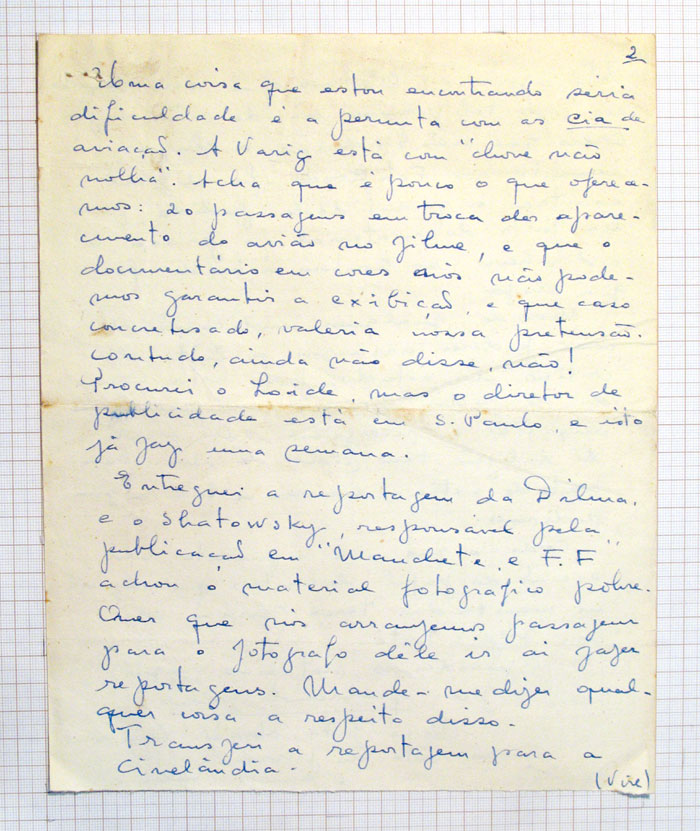 2
Uma coisa que estou encontrando séria
dificuldade é a permuta com as cia de
aviação. A Varig está com "chove não
molha". Acha que é pouco o que oferece-
mos: 20 passagens em troca do apare-
cimento do avião no filme, e que o
documentário em cores nós não pode-
mos garantir a exibição, e que caso
concretisado, valeria nossa pretensão.
contudo, ainda não disse, não!
Procurei o Loide, mas o diretor de
publicidade está em S. Paulo, e isto
já faz uma semana.
Entreguei a reportagem da Dilma,
e o Shatowsky, responsável pela
publicacão em "Manchete, e F.F"
achou o material fotografico pobre.
Quer que nós arranjemos passagem
para o fotografo dêle ir ai fazer
reportagens. Mande-me dizer qual-
quer coisa a respeito disso.
Transferi a reportagem para a
Cinelândia.
(Vire)